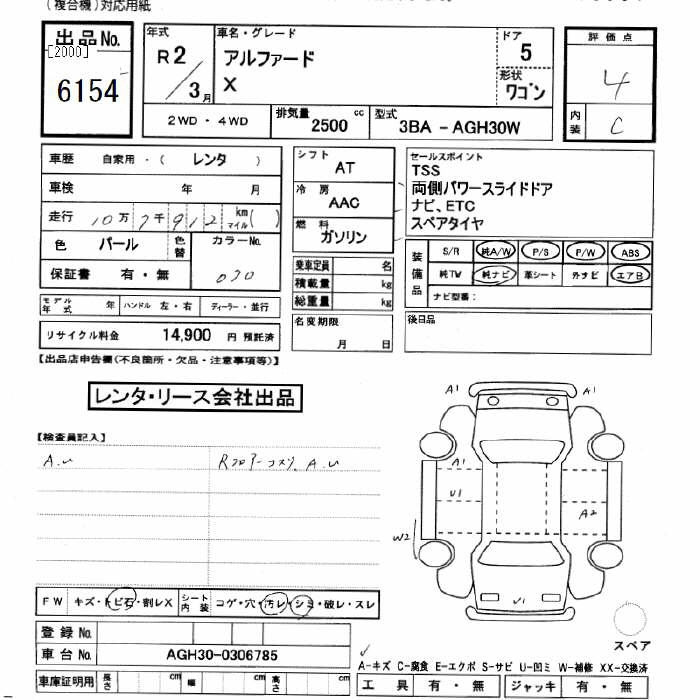 (複合機)対応用紙
出品No.
[2000]
6154
年式
R2/3月
車名・グレード
アルファード
X
ドア
5
形状
ワゴン
評価点
4
内装
C
2WD・4WD
排気量 2500 cc
型式 3BA-AGH30W
車歴 自家用・( レンタ )
車検 年 月
走行 10万7千912 km マイル( )
色 パール 色替 カラーNo. 070
保証書 有・無
モデル年式 年 ハンドル 左・右 ディーラー・並行
リサイクル料金 14,900 円 預託済
シフト AT
冷房 AAC
燃料 ガソリン
乗車定員 名
積載量 kg
総重量 kg
名変期限
月 日
セールスポイント
TSS
両側パワースライドドア
ナビ、ETC
スペアタイヤ
装備品
S/R 純A/W P/S P/W ABS
純TW 純ナビ 革シート 外ナビ エアB
ナビ型番:
後日品
【出品店申告欄(不良箇所・欠品・注意事項等)】
レンタ・リース会社出品
【検査員記入】
A.U
Rフロアーコメリ. A.U
A1 A1
A1
U1
A2
W2
U1
スペア
FW キズ・トビ石・割レX シート内装 コゲ・穴・汚レ・シミ・破レ・スレ
登録No.
車台No. AGH30-0306785
車庫証明用 長さ cm 幅 cm 高さ cm
A-キズ C-腐食 E-エクボ S-サビ U-凹ミ W-補修 XX-交換済
工具 有・無 ジャッキ 有・無